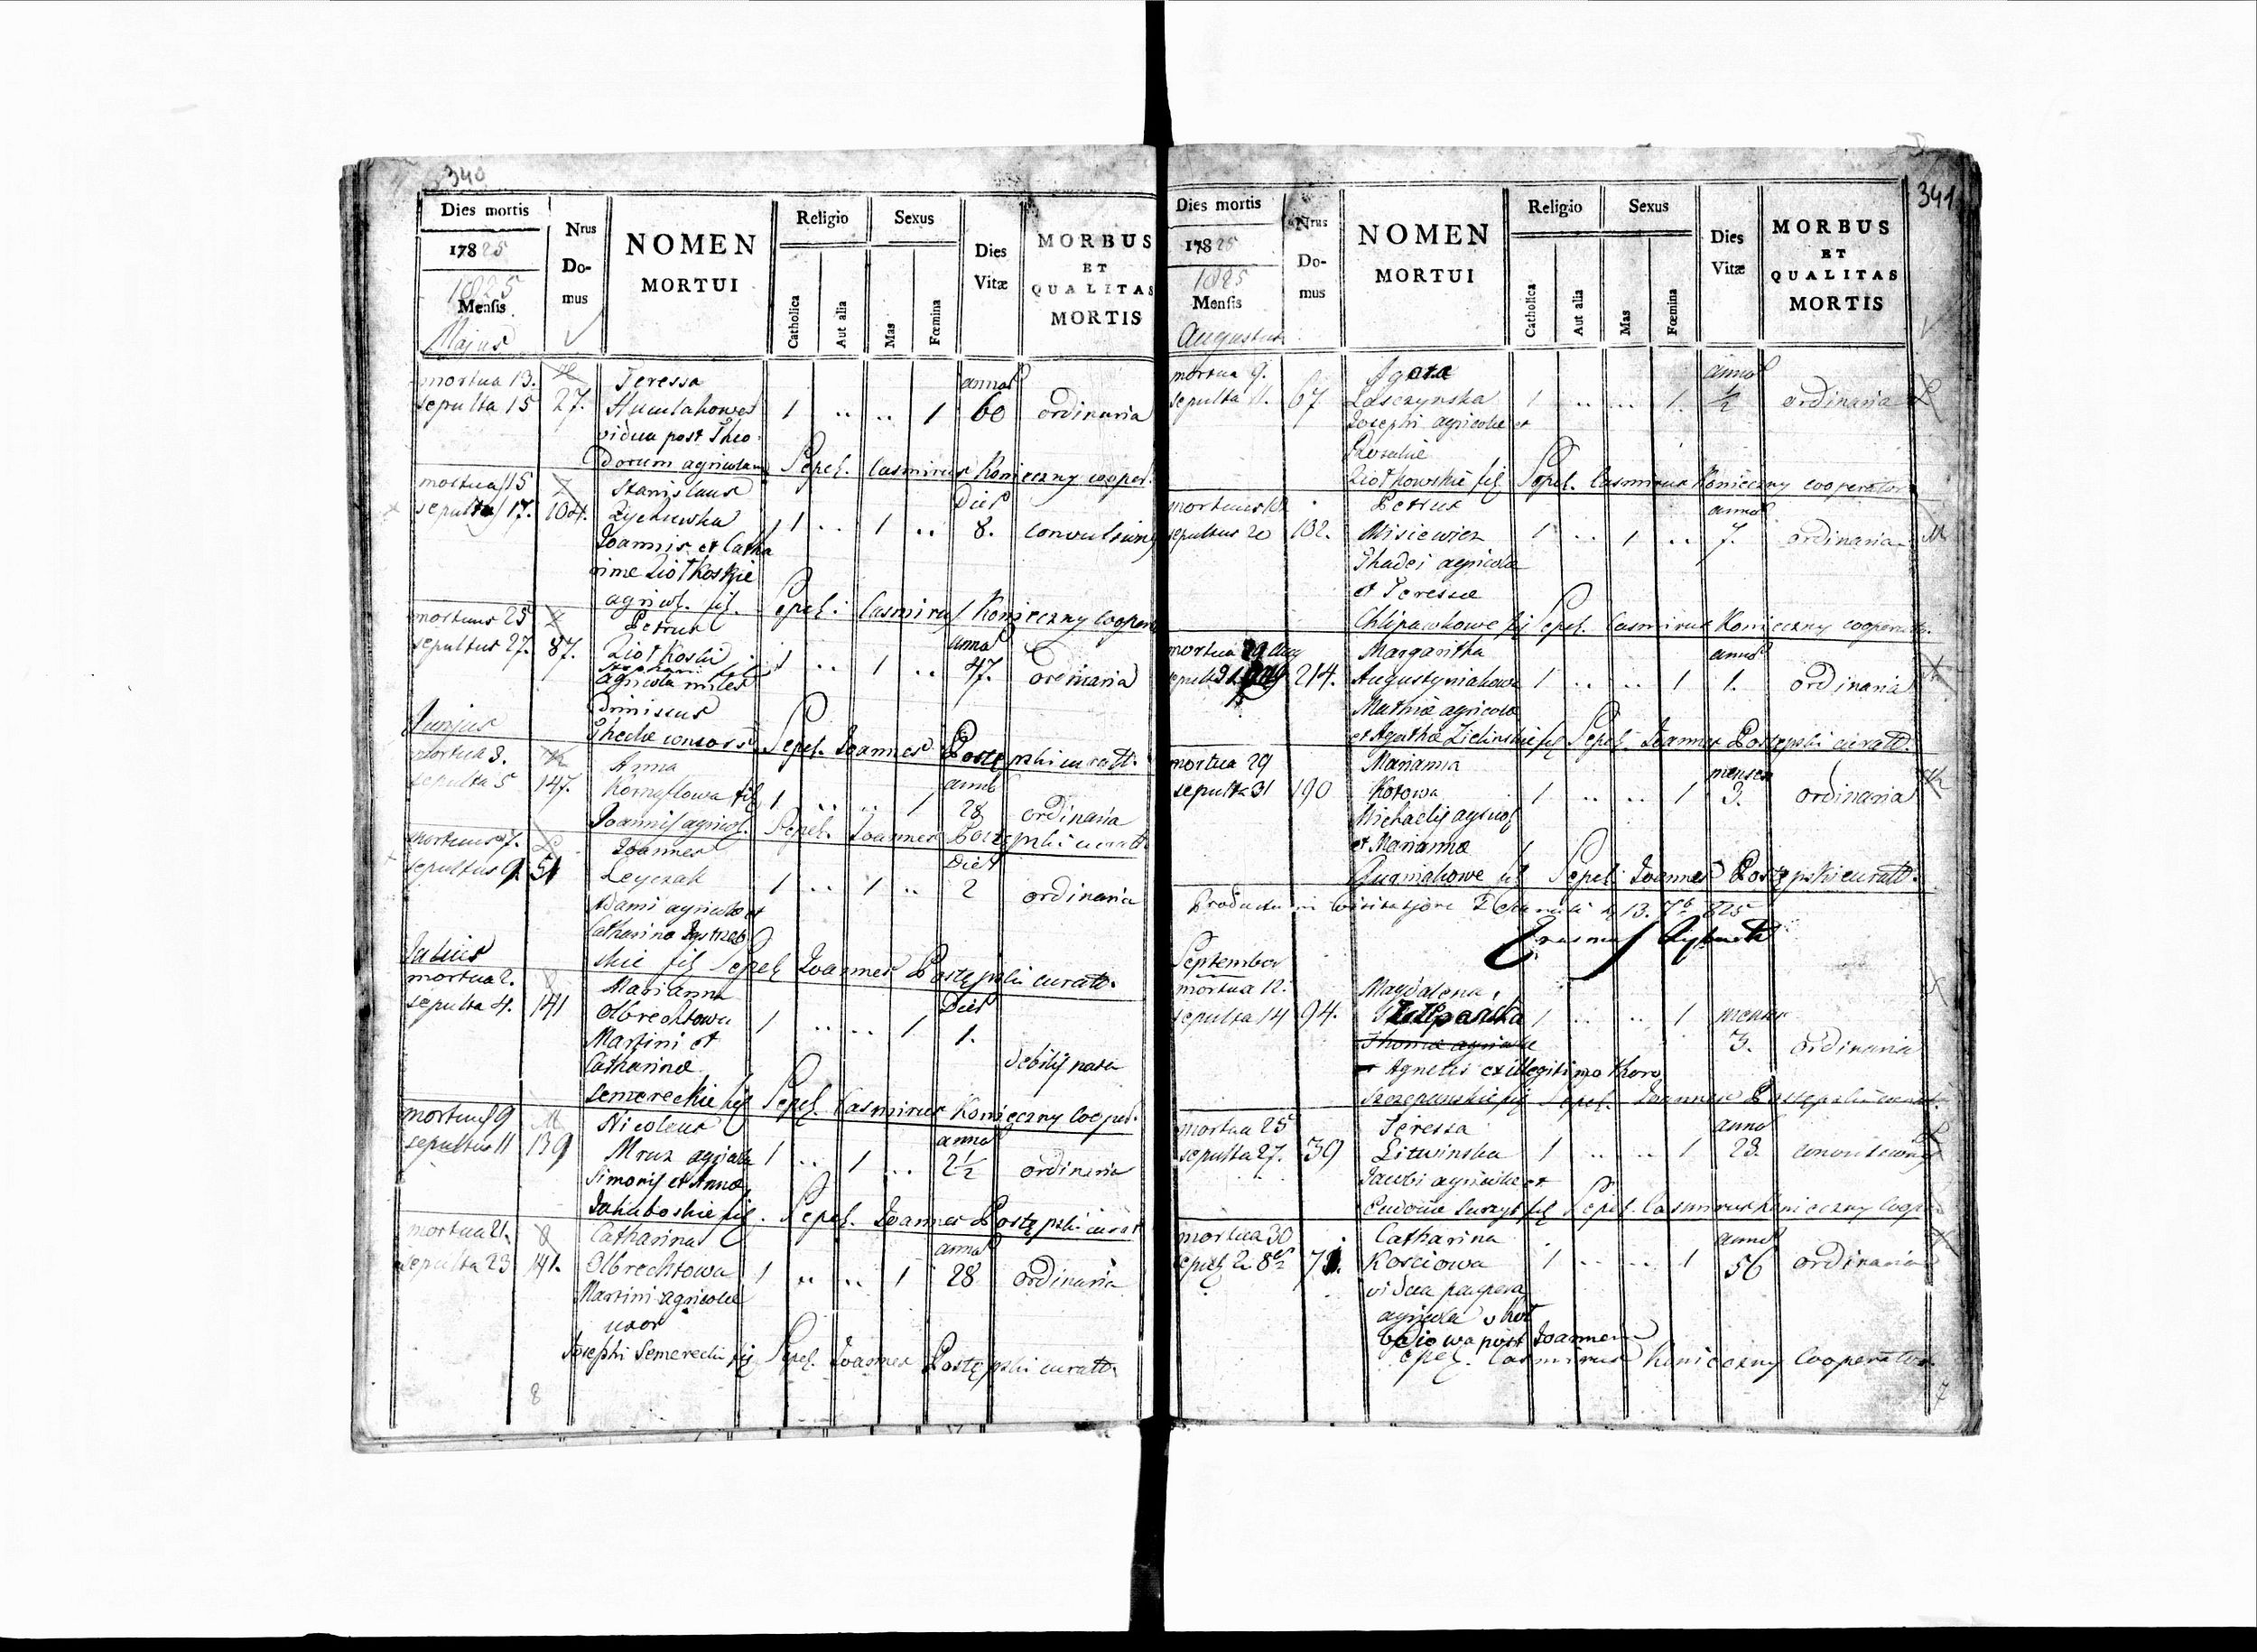 340
Dies mortis
Nrus
Do-
mus
NOMEN
MORTUI
Religio
Sexus
Catholica
Aut alia
Mas
Fœmina
Dies
Vitæ
MORBUS
ET
QUALITAS
MORTIS
17825
1825
Mensis
Majus
mortua 13. Teressa annos
sepulta 15 27. 1 .. .. 1 60 ordinaria
vidua post Theo-
dorum agricolam Sepel. Casmirus Konieczny cooper.
mortua 15 Stanislaus Dies
sepulta 17. 104. Zychewka 1 .. 1 .. 8. convulsiones
Joannis et Catha
rine Ziotkoskie
agricol. fil. Sepel. Casmirus Konieczny Cooper
mortuus 25 Petrus anno
sepultus 27. 87. Ziotkoski 1 .. 1 .. 47. ordinaria
agricola miles
dimissus
Junius
Thecle consors Sepel. Joannes Postępski curatt.
mortua 3. Anna anno
sepulta 5 147. Kornyllowa fil 1 .. .. 1 28 ordinaria
Joannis agricol. Sepel. Joannes Postępski curatt
mortuus 7. Joannes Dies
sepultus 9. 51 Leyczak 1 .. 1 .. 2 ordinaria
Adami agricole et
Catharine Jastrzeb
Julius
skie fil Sepel Joannes Postępski curatt.
mortua 2. Marianna Dies
sepulta 4. 141 Olbrechtowa 1 .. .. 1 1.
Martini et
Catharine debilis nata
Semereckie fil Sepel. Casmirus Konieczny Cooper.
mortuus 9 Nicolaus anno
sepultus 11 139 Mruz agricola 1 .. 1 .. 2½ ordinaria
Simonis et Anna
Jakuboskie fil. Sepel. Joannes Postępski curat
mortua 21. Catharina anno
sepulta 23 141. Olbrechtowa 1 .. .. 1 28 ordinaria
Martini agricole
uxor
Josephi Semerecki fil Sepel. Joannes Postępski curatt.
8
341
Dies mortis
Nrus
Do-
mus
NOMEN
MORTUI
Religio
Sexus
Catholica
Aut alia
Mas
Fœmina
Dies
Vitæ
MORBUS
ET
QUALITAS
MORTIS
17825
1825
Mensis
Augustus
mortua 9. Agata anno
sepulta 11. 67 Lasczynska 1 .. .. 1. ½ ordinaria
Josephi agricole et
Rosalie
Ziotkowskie fil Sepel. Casmirus Konieczny cooperator
mortuus 18 Petrus anno
sepultus 20 132. Misiewicz 1 .. 1 .. 7. ordinaria
Thadei agricole
et Teresse
Chlipawkowe fil Sepel. Casmirus Konieczny cooperatt.
mortua 29 Aug Margaritha anno
sepulta 31 214. Augustyniakowa 1 .. .. 1 1. ordinaria
Mathie agricole
et Agatha Zielinskie fil Sepel. Joannes Postępski curatt.
mortua 29 Marianna menses
sepulta 31 190 Kotowa 1 .. .. 1 3. ordinaria
Michaelis agricol
et Marianna
fil Sepel. Joannes Postępski curatt.
Producta in Visitatione Decanali d. 13. 7b 825
Erasmus
September
mortua 12. Magdalena
sepulta 14 94. 1 .. .. 1 menses
Thome agricole 3. ordinaria
Agnetis ex illegitimo thoro
Szczepanskie fil Sepel. Joannes Postępski curat.
mortua 25 Teressa anno
sepulta 27. 39 Litwinska 1 .. .. 1 23.
Jacobi agricole et
fil Sepel. Casmirus Konieczny coop
mortua 30 Catharina anno
Sepel 2 8bris Kosciowa 1 .. .. 1 56 ordinaria
vidua paupera
agricola
post Joannem
Sepel. Casmirus Konieczny Cooperator
7